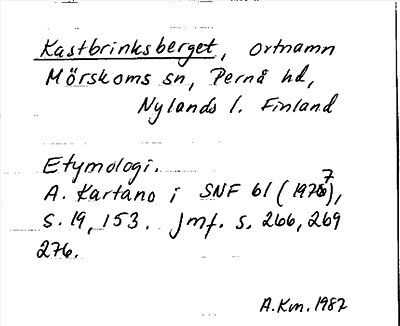 Kastbrinksberget, ortnamn
Mörskoms sn, Pernå hd,
Nylands l. Finland
Etymologi.
A. Kartano i SNF 61 (1977),
s. 19, 153. Jmf. s. 266, 269
276.
A.Km. 1987